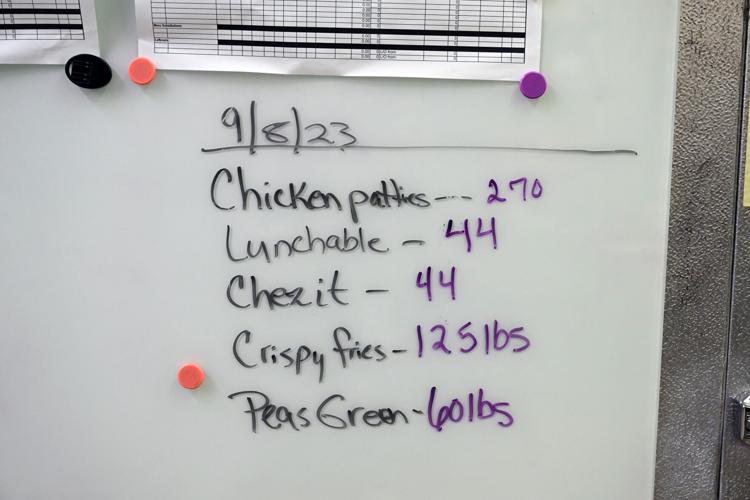 9/8/23
Chicken patties---- 270
Lunchable - 44
Chezit - 44
Crispy fries - 125 lbs
Peas Green - 60 lbs